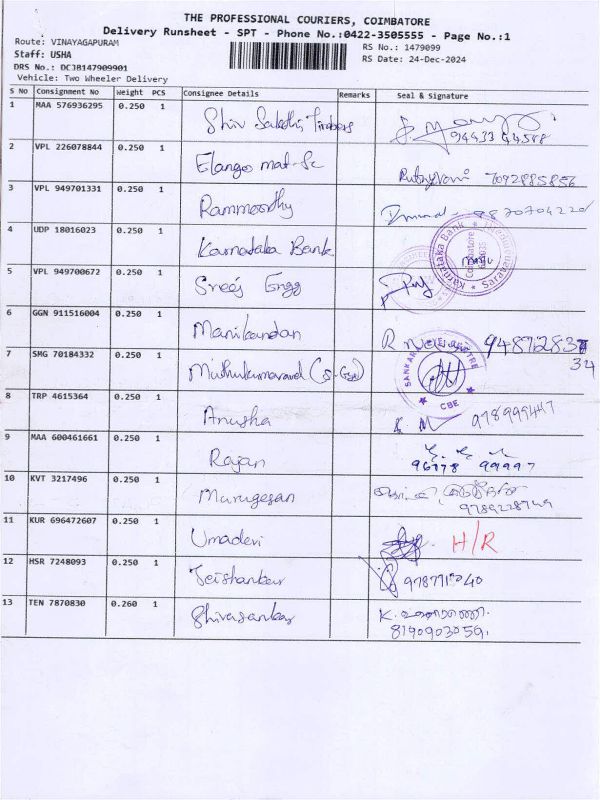 THE PROFESSIONAL COURIERS, COIMBATORE
Delivery Runsheet - SPT - Phone No.:0422-3505555 - Page No.:1
Route: VINAYAGAPURAM
RS No.: 1479099
Staff: USHA
RS Date: 24-Dec-2024
DRS No.: DCJB147909901
Vehicle: Two Wheeler Delivery
S No Consignment No Weight PCS Consignee Details Remarks Seal & Signature
1 MAA 576936295 0.250 1 Shiv Sakthi Timbers
2 VPL 226078844 0.250 1 Elango mat-Sc 7092885856
3 VPL 949701331 0.250 1 Rammoorthy
4 UDP 18016023 0.250 1 Karnataka Bank
Karnataka Bank Coimbatore
5 VPL 949700672 0.250 1 Sreej Engg
6 GGN 911516004 0.250 1 Manikandan
7 SMG 70184332 0.250 1 Muthukumaravel
CBE
8 TRP 4615364 0.250 1 Anusha
9 MAA 600461661 0.250 1 Rajan
96778 99997
10 KVT 3217496 0.250 1 Murugesan
9789228749
11 KUR 696472607 0.250 1 Umadevi H/R
12 HSR 7248093 0.250 1 Jeishankar
13 TEN 7870830 0.260 1 Shivasankar K.
8190903059.